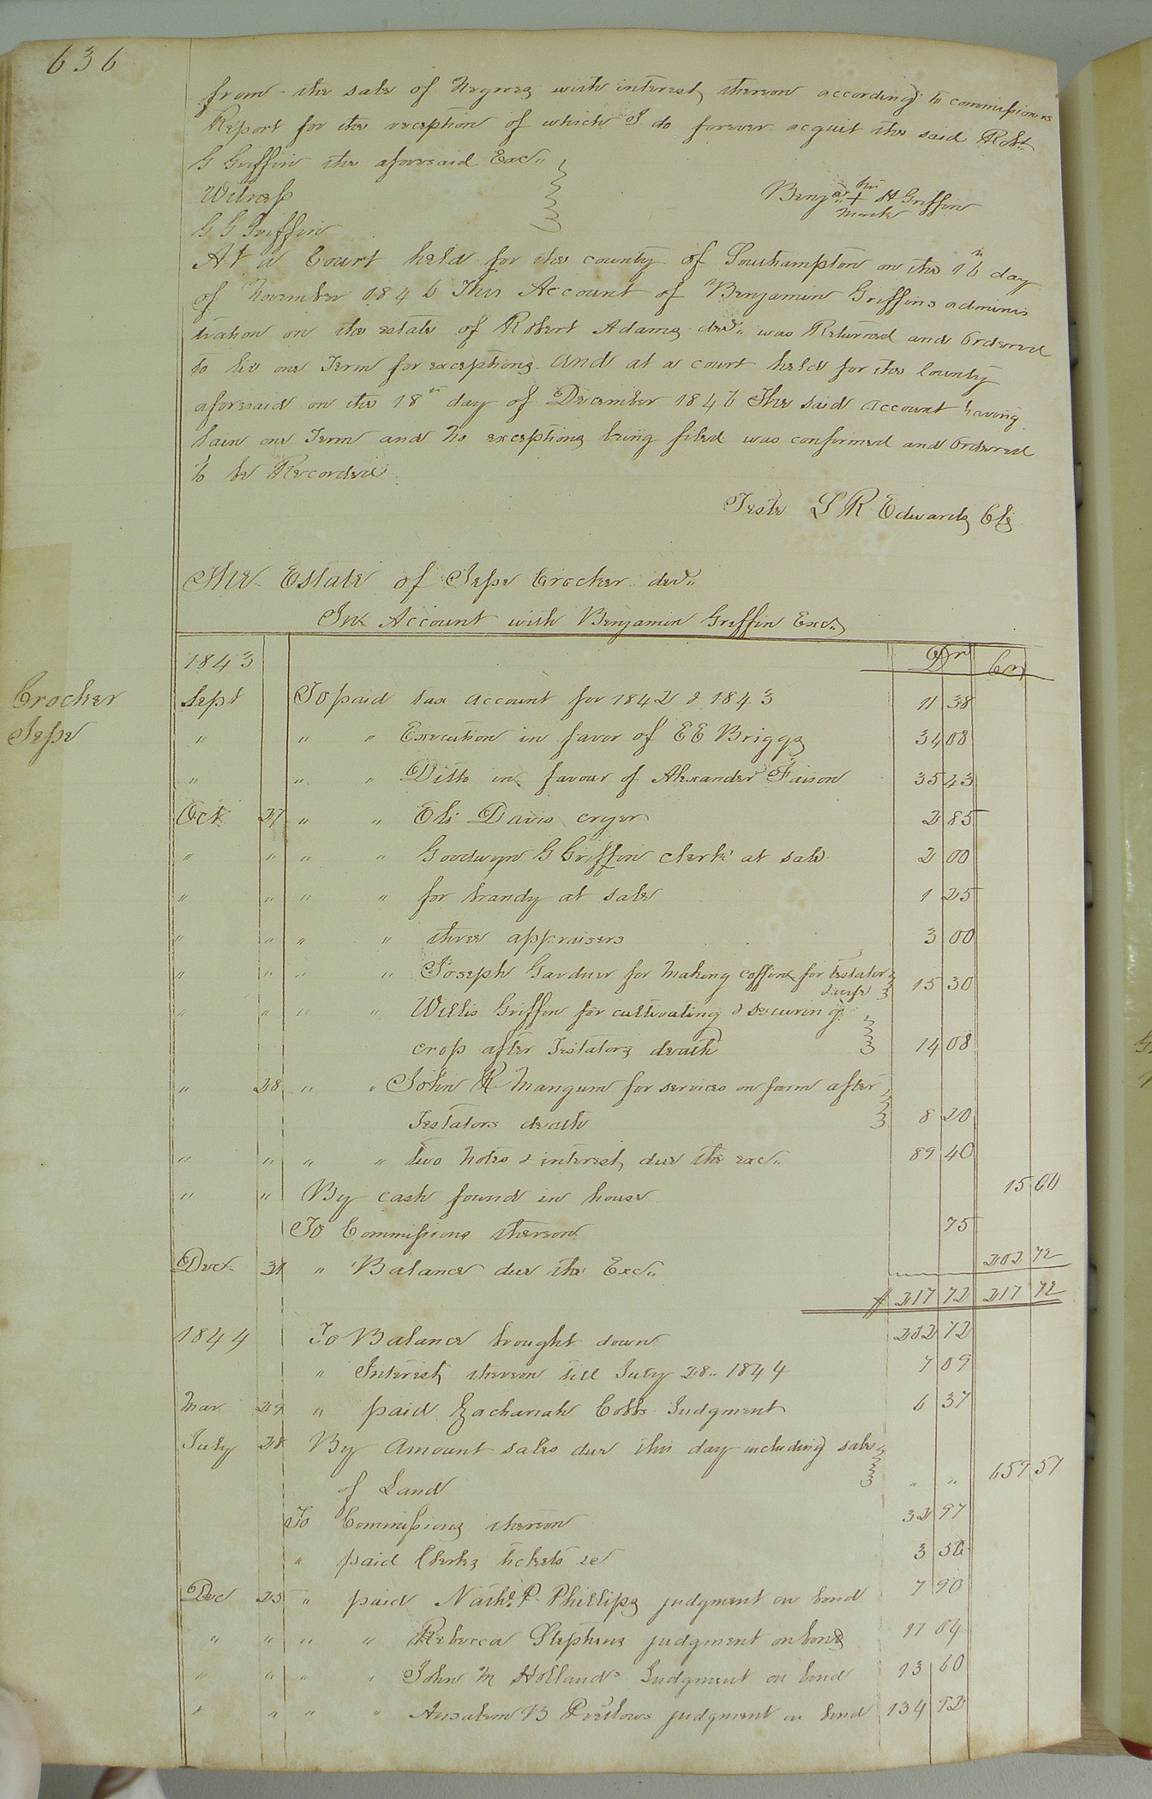 636
from the sale of Negroes with interest thereon according to commissioners
Report for the reception of which I do forever acquit the said Robt.
G Griffin the aforesaid Exc..
Witness
Benjn his + H Griffin
mark
G G Griffin
At a Court held for the county of Southampton on the 16th day
of November 1846 This Account of Benjamin Griffins adminis
tration on the estate of Robert Adams decd.. was Returned and Ordered
to lie one Term for exceptions. And at a court held for the County
aforesaid on the 18th day of December 1846 The said account having
lain one Term and no exceptions being filed was confirmed and Ordered
to be Recorded
Teste L R Edwards Clk
The Estate of Jesse Crocker decd..
In Account with Benjamin Griffin Exc..
1843 Dr Cr
Crocker
Jesse
Sept To paid tax account for 1842 & 1843 11 38
" " " Execution in favor of E E Briggs 34 08
" " " Ditto in favour of Alexander Faison 35 43
Oct 27 " " Eli Davis cryer 2 85
" " " " Goodwyn G Griffin clerk at sale 2 00
" " " " for brandy at sale 1 25
" " " " three appraisers 3 00
" " " " Joseph Gardner for making coffins for testator 15 30
" " " " Willis Griffin for cultivating & securing
crop after Testators death 14 08
" 28 " " John R Mangum for services on farm after
Testators death 8 20
" " " " two notes & interest, due the exc.. 89 40
" " By cash found in house 15 00
To Commissions thereon 75
Dect. 31 " Balance due the Exc.. 202 72
$ 217 72 217 72
1844 To Balance brought down 202 72
" Interest thereon till July 28.. 1844 7 09
Mar 29 " paid Zachariah Cobbs Judgment 6 37
July 28 By Amount sales due this day including sale
of Land " " 659 51
To Commissions thereon 32 97
" paid Clerks tickets &c 3 56
Dec 25 " paid Nathl. P. Phillips judgment on bond 7 90
" " " " Rebecca Stephens judgment on bond 11 04
" " " " John M Hollands Judgment on bond 13 60
" " " " B judgment on bond 134 52